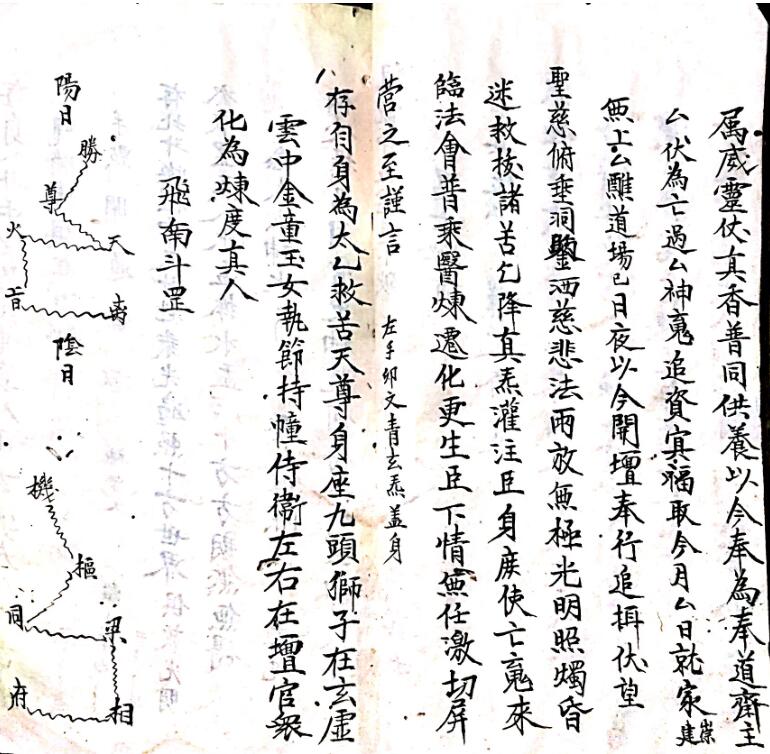 属威靈仗真香普同供養以今奉為奉道齋主
厶伏為亡過厶神䰟追資冥福取今月厶日就家崇建
無上厶醮道場㔾日夜以今開壇奉行追摂伏望
聖慈俯垂洞鑒洒慈悲法雨放無極光明照燭昏
迷救拔諸苦乞降真炁灌注臣身庻使亡䰟來
臨法會普乘醫煉遷化更生臣下情無任激切屏
营之至謹言 左手卯文青玄炁盖身
存自身為太乙救苦天尊身座九頭獅子在玄虛
雲中金童玉女執節持幢侍衛左右在壇官眾
化為煉度真人
飛南斗罡
陽日
勝
尊
火
天
壽
陰日
機
樞
同
梁
府
相